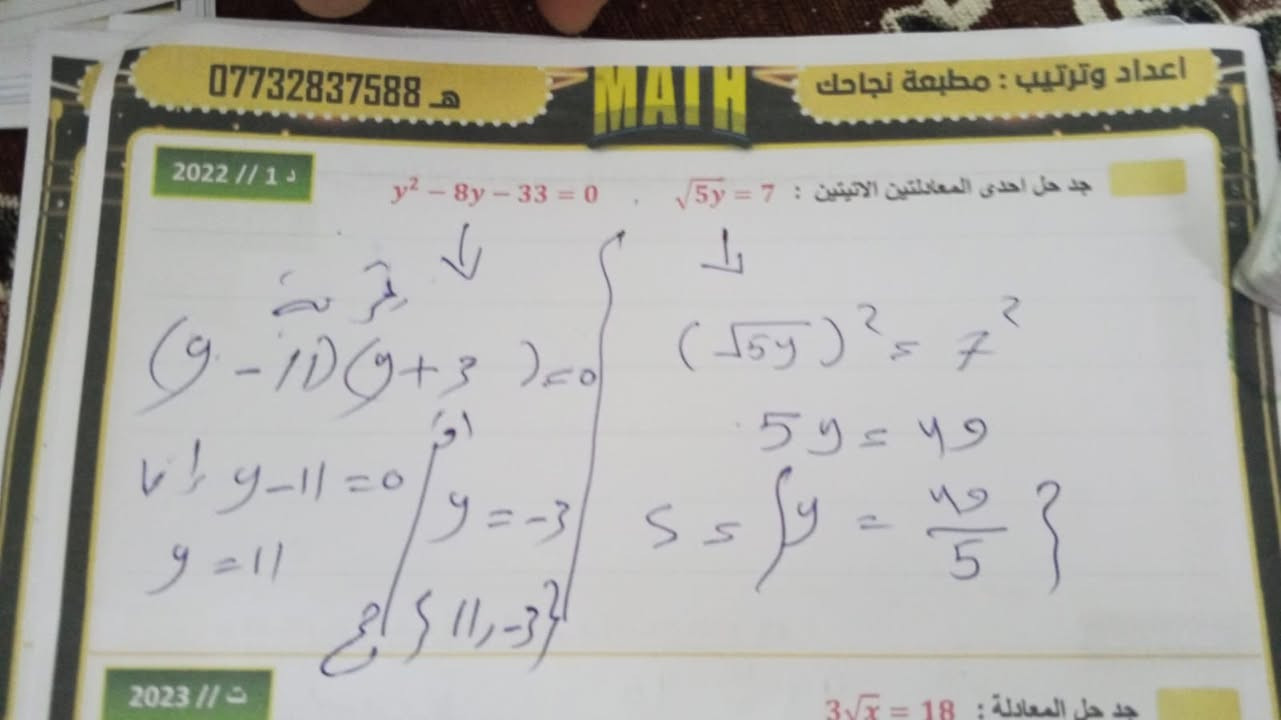 اعداد وترتيب : مطبعة نجاحك
MATH
هـ 07732837588
جد حل احدى المعادلتين الاتيتين : √5y = 7 , y² − 8y − 33 = 0
د 1 // 2022
(√5y)² = 7²
5y = 49
S = {y = 49/5}
تجربة
(y − 11)(y + 3) = 0
اما y − 11 = 0
y = 11
او
y = −3
{11, −3}
جد حل المعادلة : 3√x = 18
ت // 2023